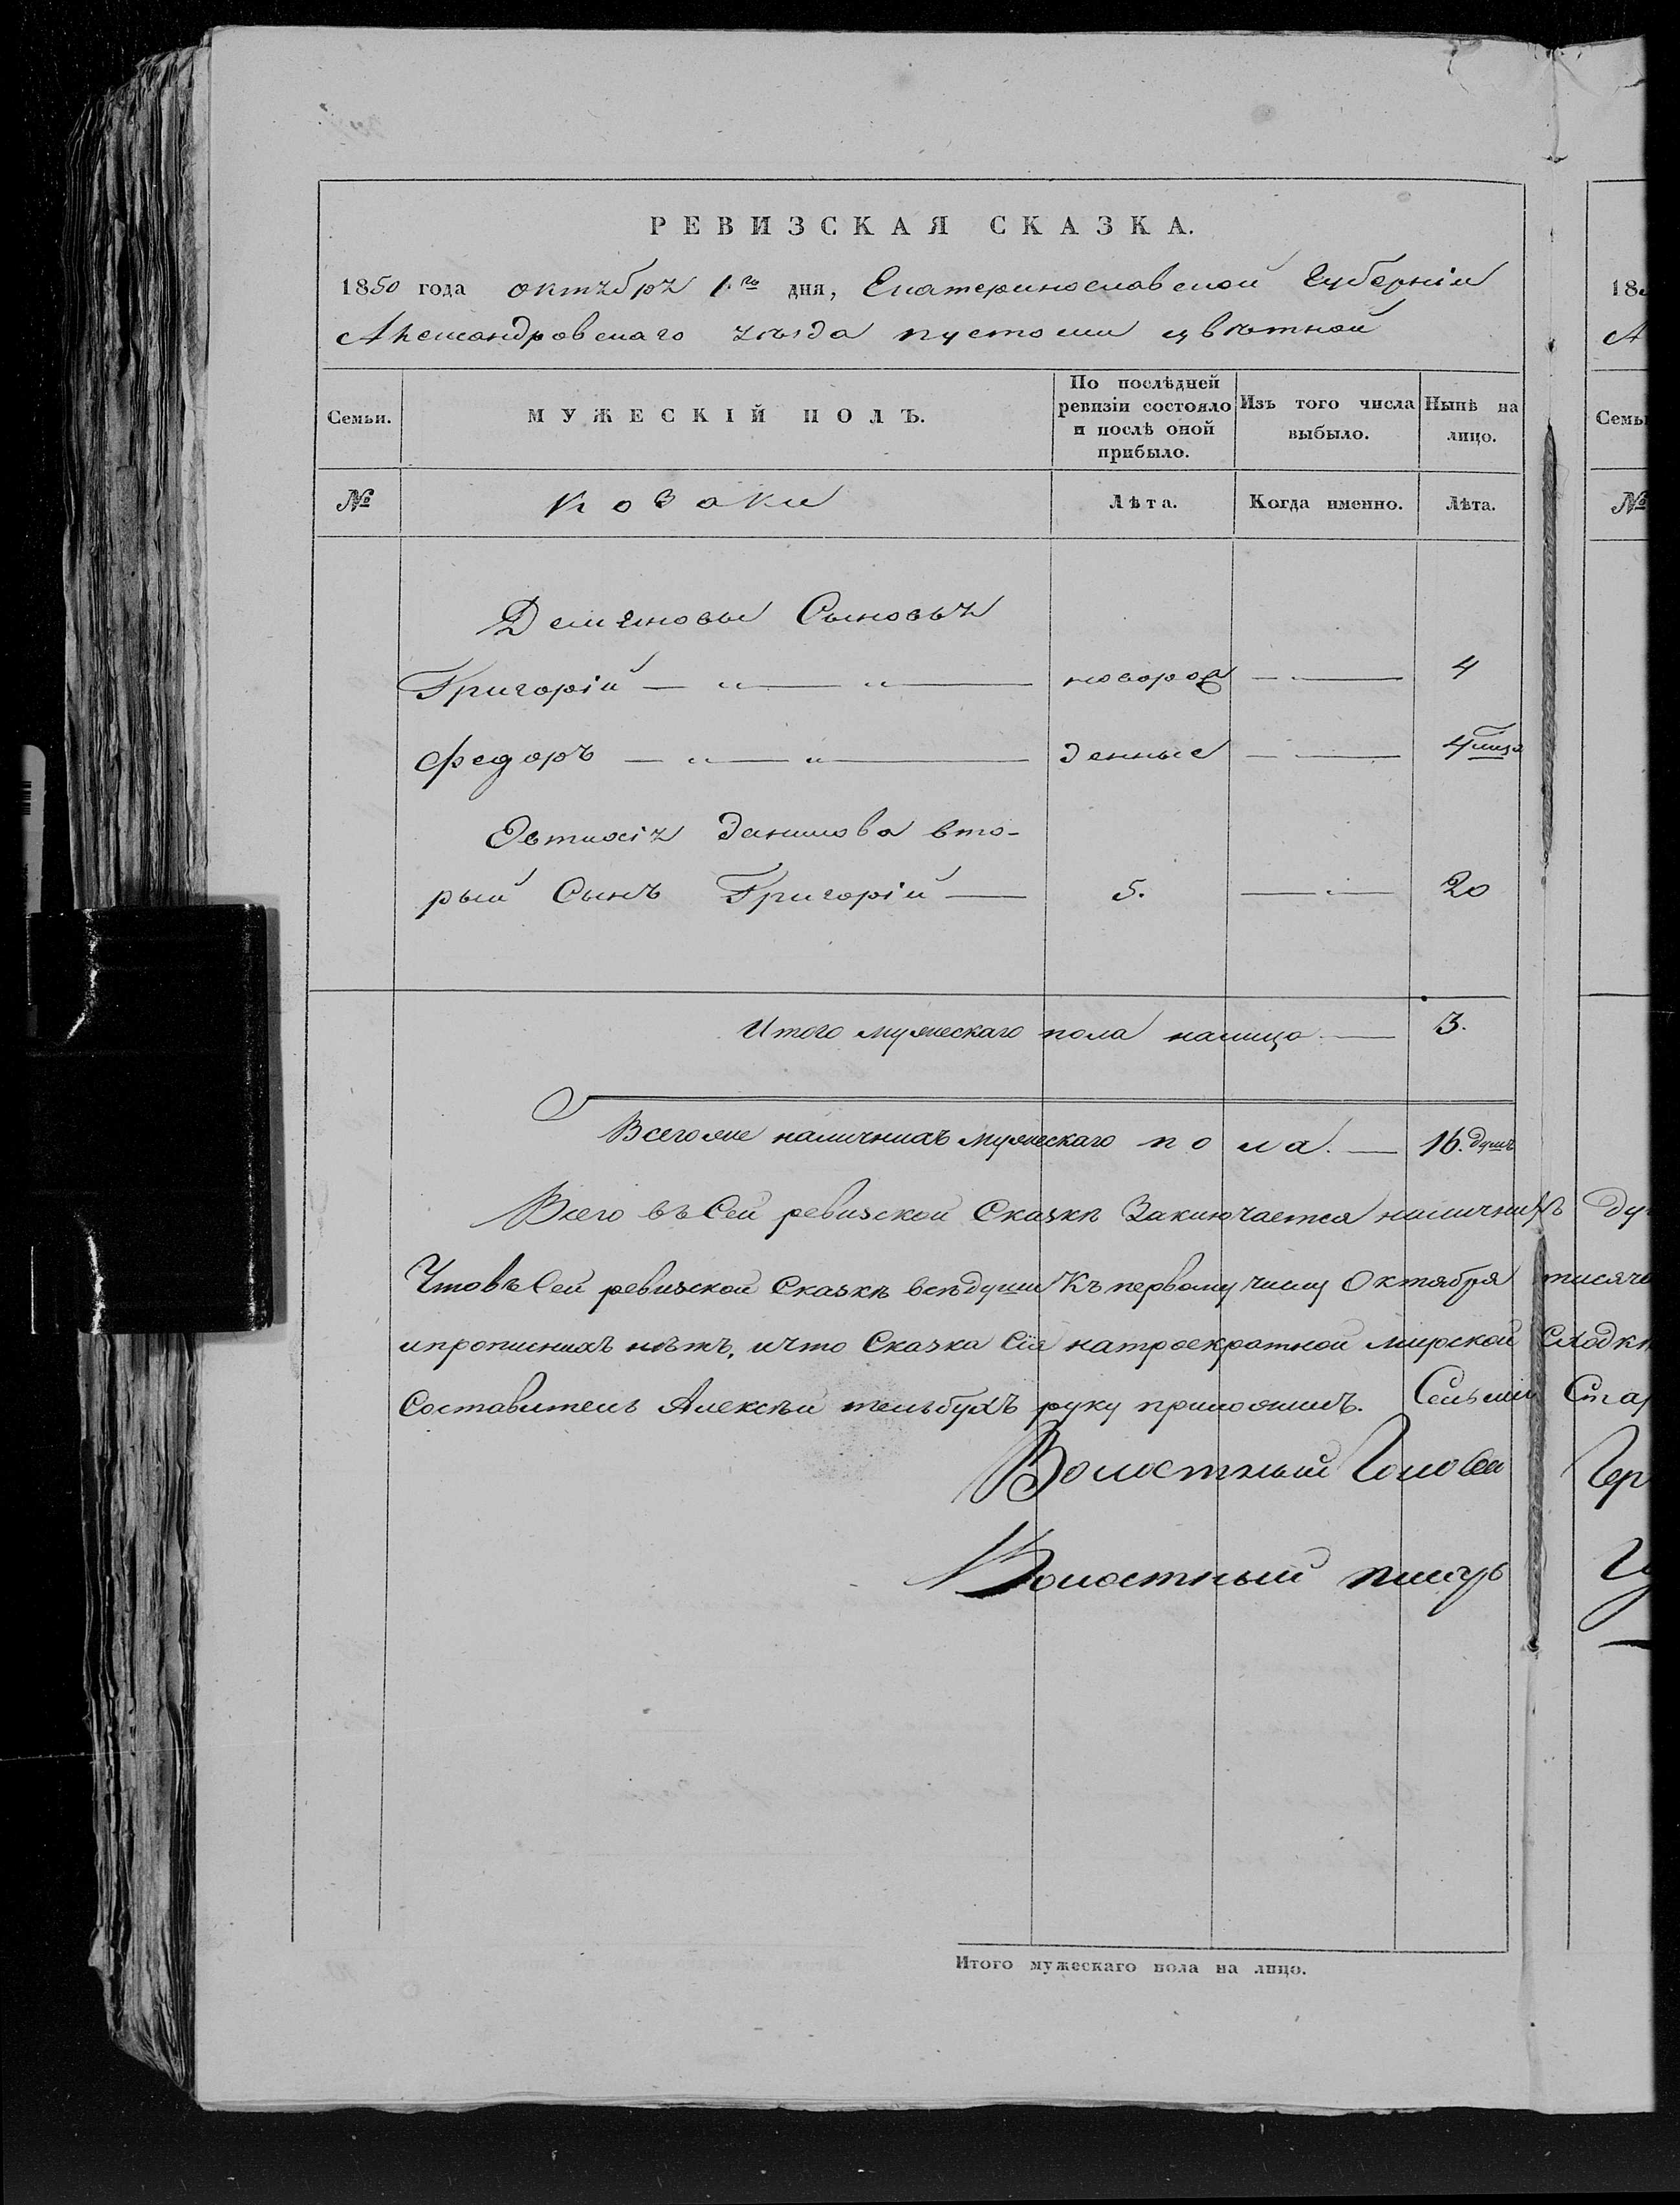 РЕВИЗСКАЯ СКАЗКА.
1850 года октября 1го дня, Екатеринославской Губерніи
Александровскаго уѣзда пустоши цвѣтной
Семьи.
МУЖЕСКІЙ ПОЛЪ.
По послѣдней ревизіи состояло и послѣ оной прибыло.
Изъ того числа выбыло.
Нынѣ на лицо.
№
козаки
Лѣта.
Когда именно.
Лѣта.
Демяновы Сыновья
Григорій — „ — „ — новорож — 4
Федоръ — „ — „ — денные — 4
Данилова вто-
рый Сынъ Григорій — 5. — 20
Итого мужескаго пола налицо — 3.
Всегоже наличнихъ мужескаго пола. — 16. душъ
Всего въ Сей ревизской Сказкѣ Заключается наличнихъ ду
Чтовъ Сей ревизской Сказкѣ всѣ души Къ первому числу Октября тисяча
ипрописнихъ нѣтъ, ичто Сказка Сія натроекратной мирской Сходкѣ
Составитель Алексѣй тельбухъ руку приложилъ. Сельскій Стар
Волостный Голова
Волостный писарь
Итого мужескаго пола на лицо.
185
А
Семьи
№